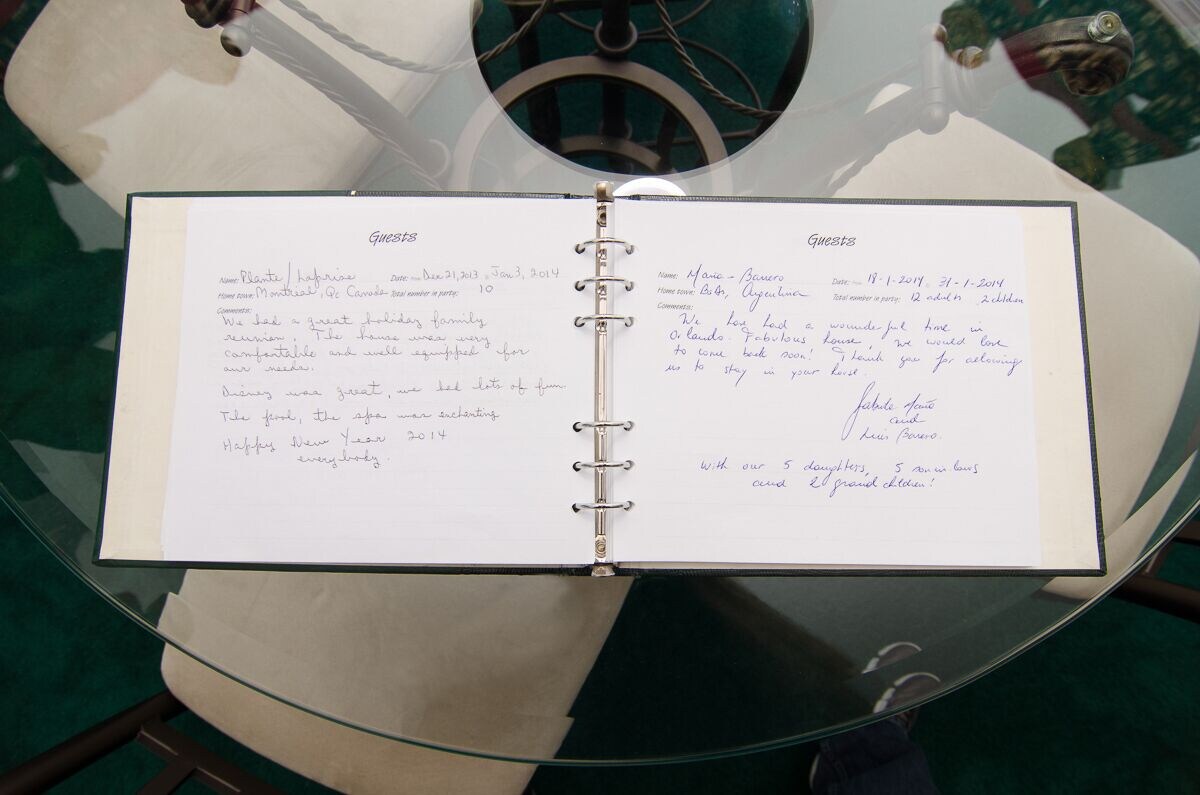 Guests
Name: Plante/Laprise Date: From Dec 21, 2013 to Jan 3, 2014
Home town: Montreal, Qc Canada Total number in party: 10
Comments:
We had a great holiday family
reunion. The house was very
comfortable and well equipped for
our needs.
Disney was great, we had lots of fun.
The pool, the spa was enchanting
Happy New Year 2014
everybody.
Guests
Name: Maño - Barrero Date: From 18-1-2014 to 31-1-2014
Home town: BsAs, Argentina Total number in party: 12 adults 2 children
Comments:
We have had a wounderful time in
Orlando. Fabulous house, we would love
to come back soon! Thank you for allowing
us to stay in your horse.
Maño
and
Luis Barrero.
With our 5 daughters, 5 son in laws
and 2 grand children!